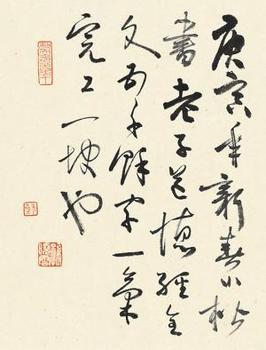 庚寅年新春小松
書老子道德經全
文五千餘字一氣
完工一快也